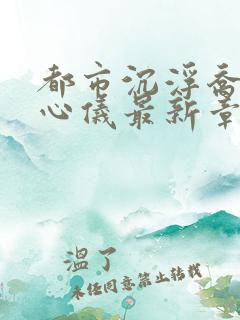 都市沉浮乔
心仪最新章
温了
未经同意禁止转载